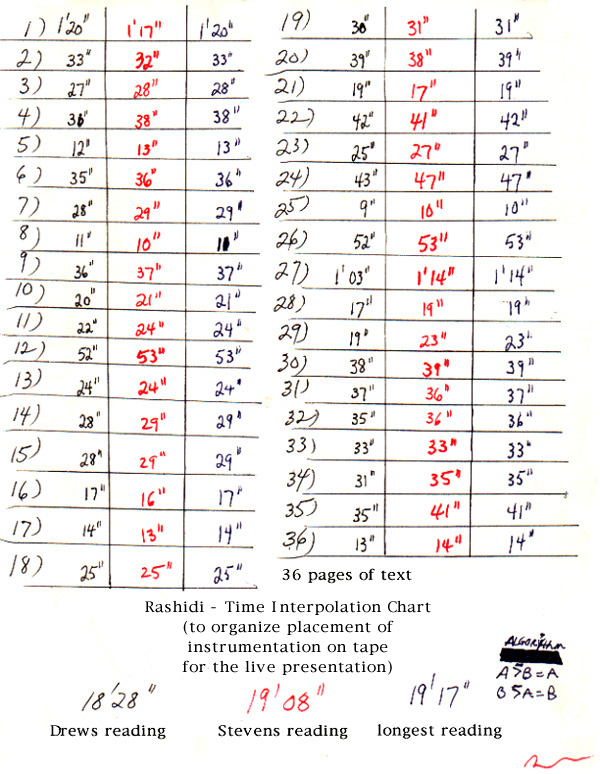 1) 1'20" 1'17" 1'20"
2) 33" 32" 33"
3) 27" 28" 28"
4) 36" 38" 38"
5) 12" 13" 13"
6) 35" 36" 36"
7) 28" 29" 29"
8) 11" 10" 11"
9) 36" 37" 37"
10) 20" 21" 21"
11) 22" 24" 24"
12) 52" 53" 53"
13) 24" 24" 24"
14) 28" 29" 29"
15) 28" 29" 29"
16) 17" 16" 17"
17) 14" 13" 14"
18) 25" 25" 25"
19) 30" 31" 31"
20) 39" 38" 39"
21) 19" 17" 19"
22) 42" 41" 42"
23) 25" 27" 27"
24) 43" 47" 47"
25) 9" 10" 10"
26) 52" 53" 53"
27) 1'03" 1'14" 1'14"
28) 17" 19" 19"
29) 19" 23" 23"
30) 38" 39" 39"
31) 37" 36" 37"
32) 35" 36" 36"
33) 33" 33" 33"
34) 31" 35" 35"
35) 35" 41" 41"
36) 13" 14" 14"
36 pages of text
Rashidi - Time Interpolation Chart
(to organize placement of
instrumentation on tape
for the live presentation)
ALGORITHM
A>B=A
B>A=B
18'28" 19'08" 19'17"
Drews reading Stevens reading longest reading